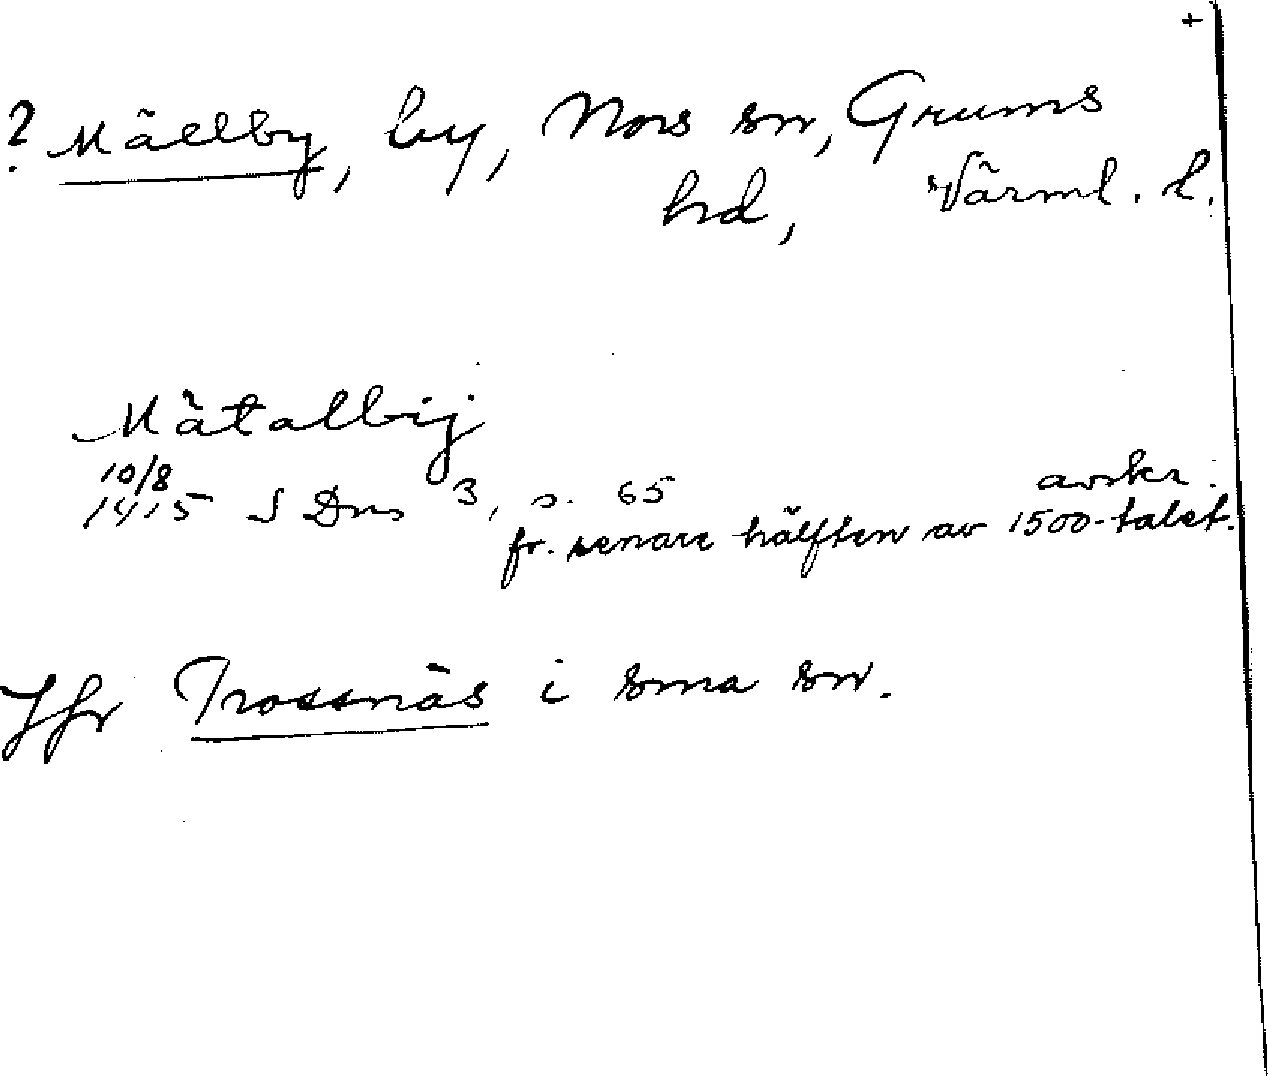 +
? Mällby, by, Nors sn, Grums
hd, Värml. l.
Mätalbij
10/8
1415 S Dns 3, s. 65 avskr.
fr. senare hälften av 1500-talet.
Jfr Trossnäs i sma sn.